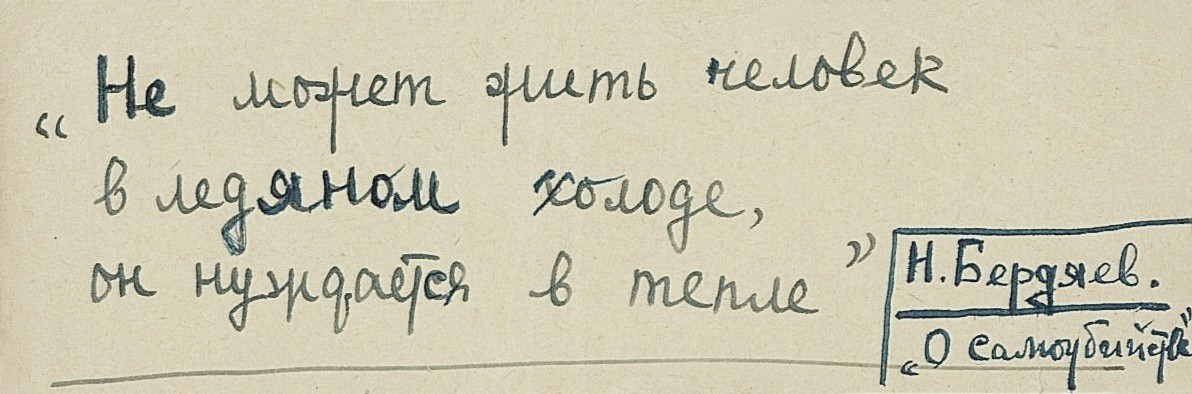 „Не может жить человек
в ледяном холоде,
он нуждается в тепле"
Н. Бердяев.
„О самоубийстве"